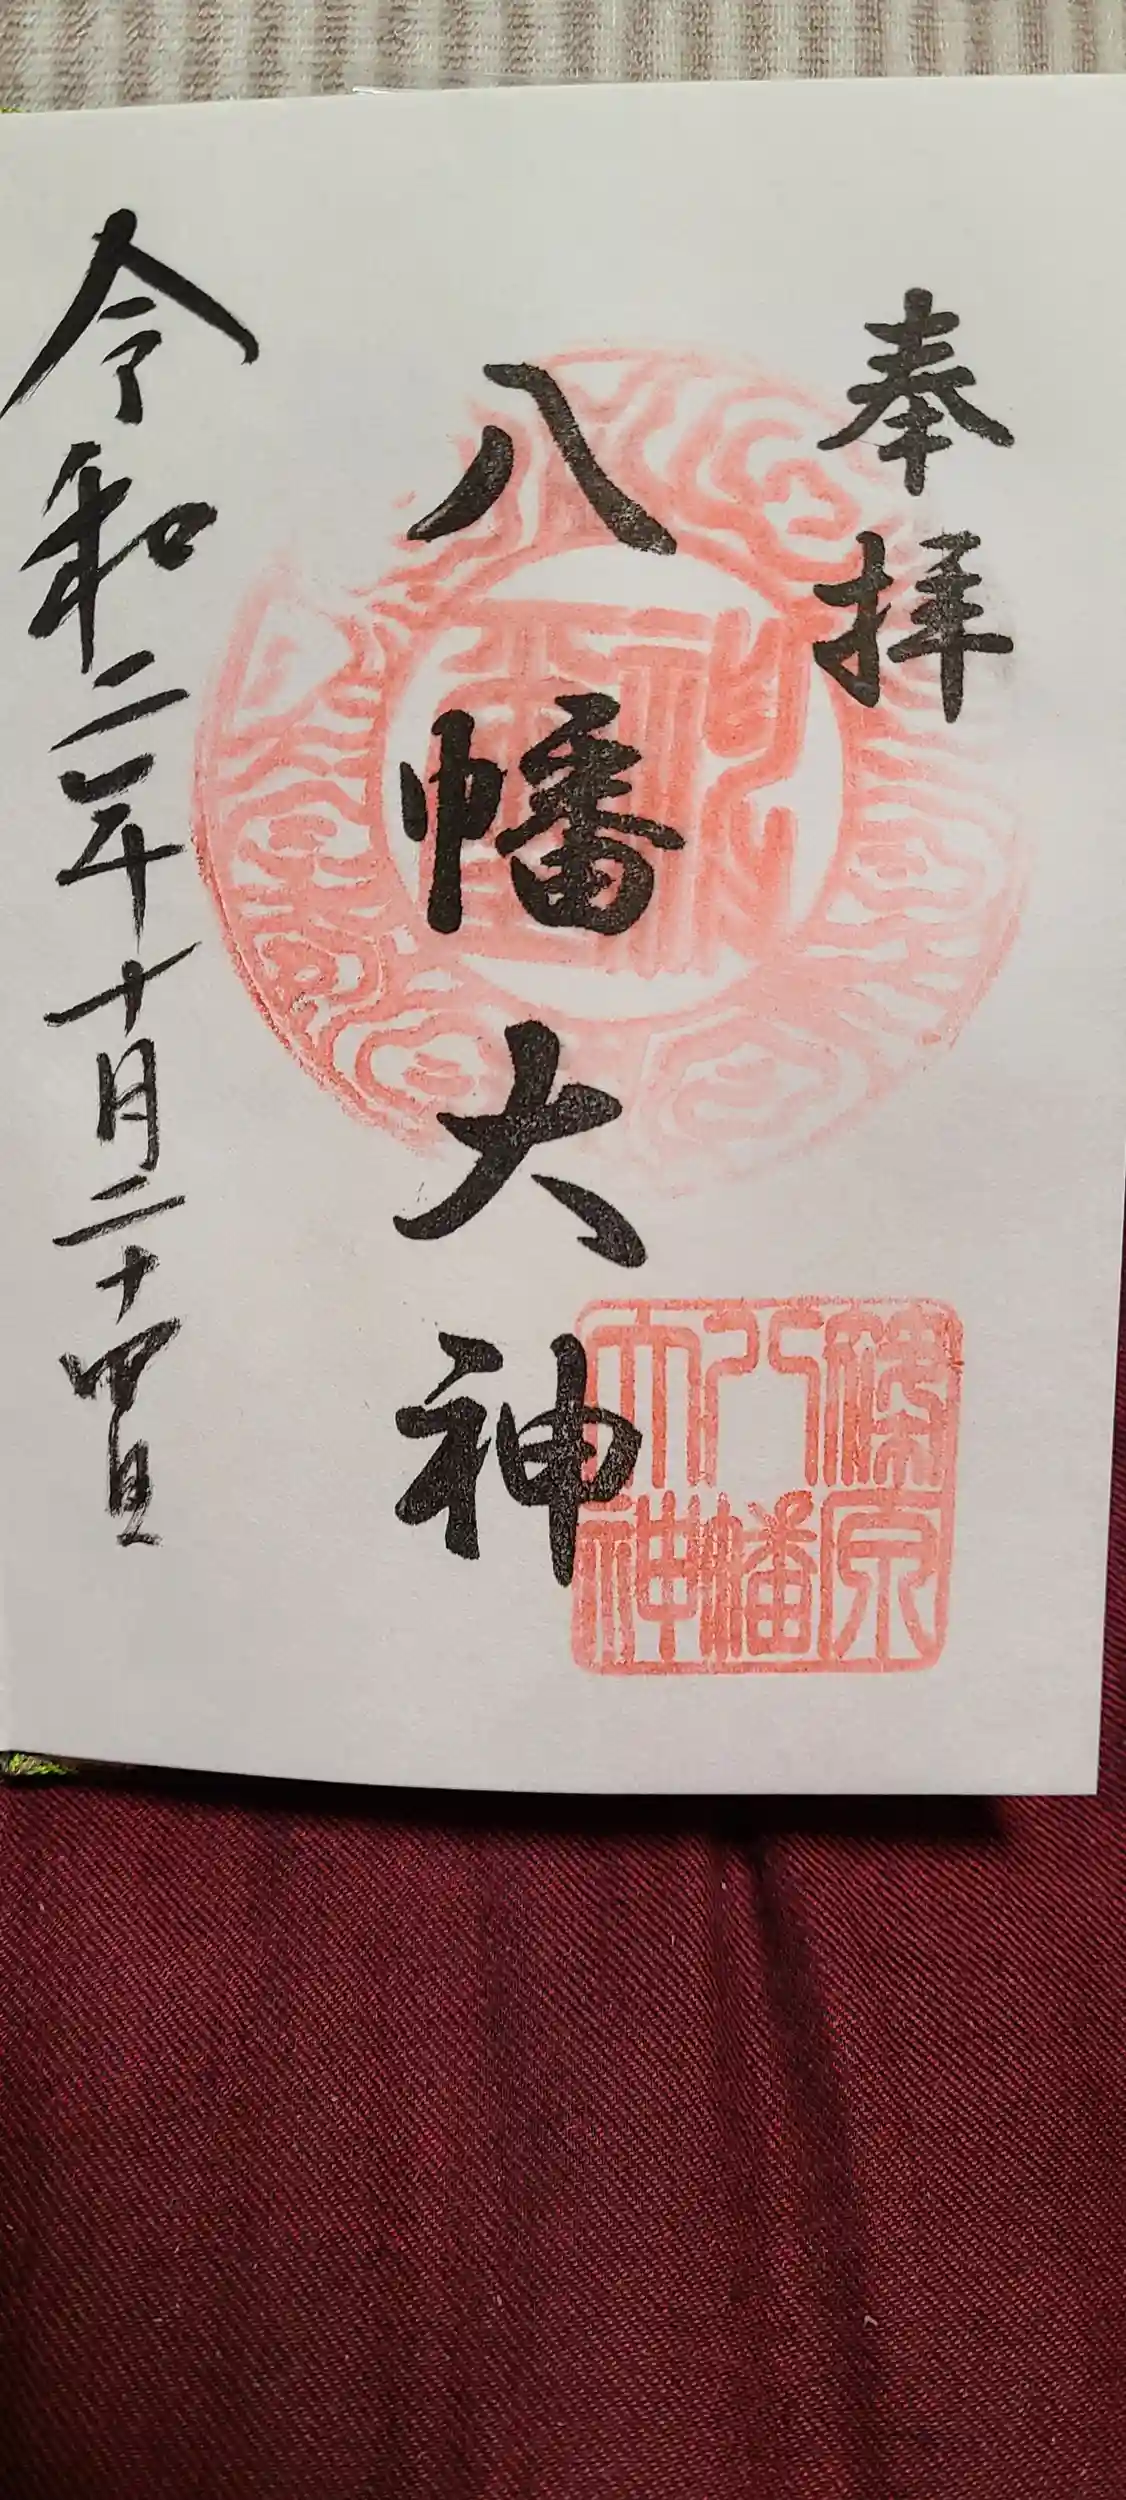 奉拝
八幡大神
令和二年十月二十四日
篠原
八幡
大神